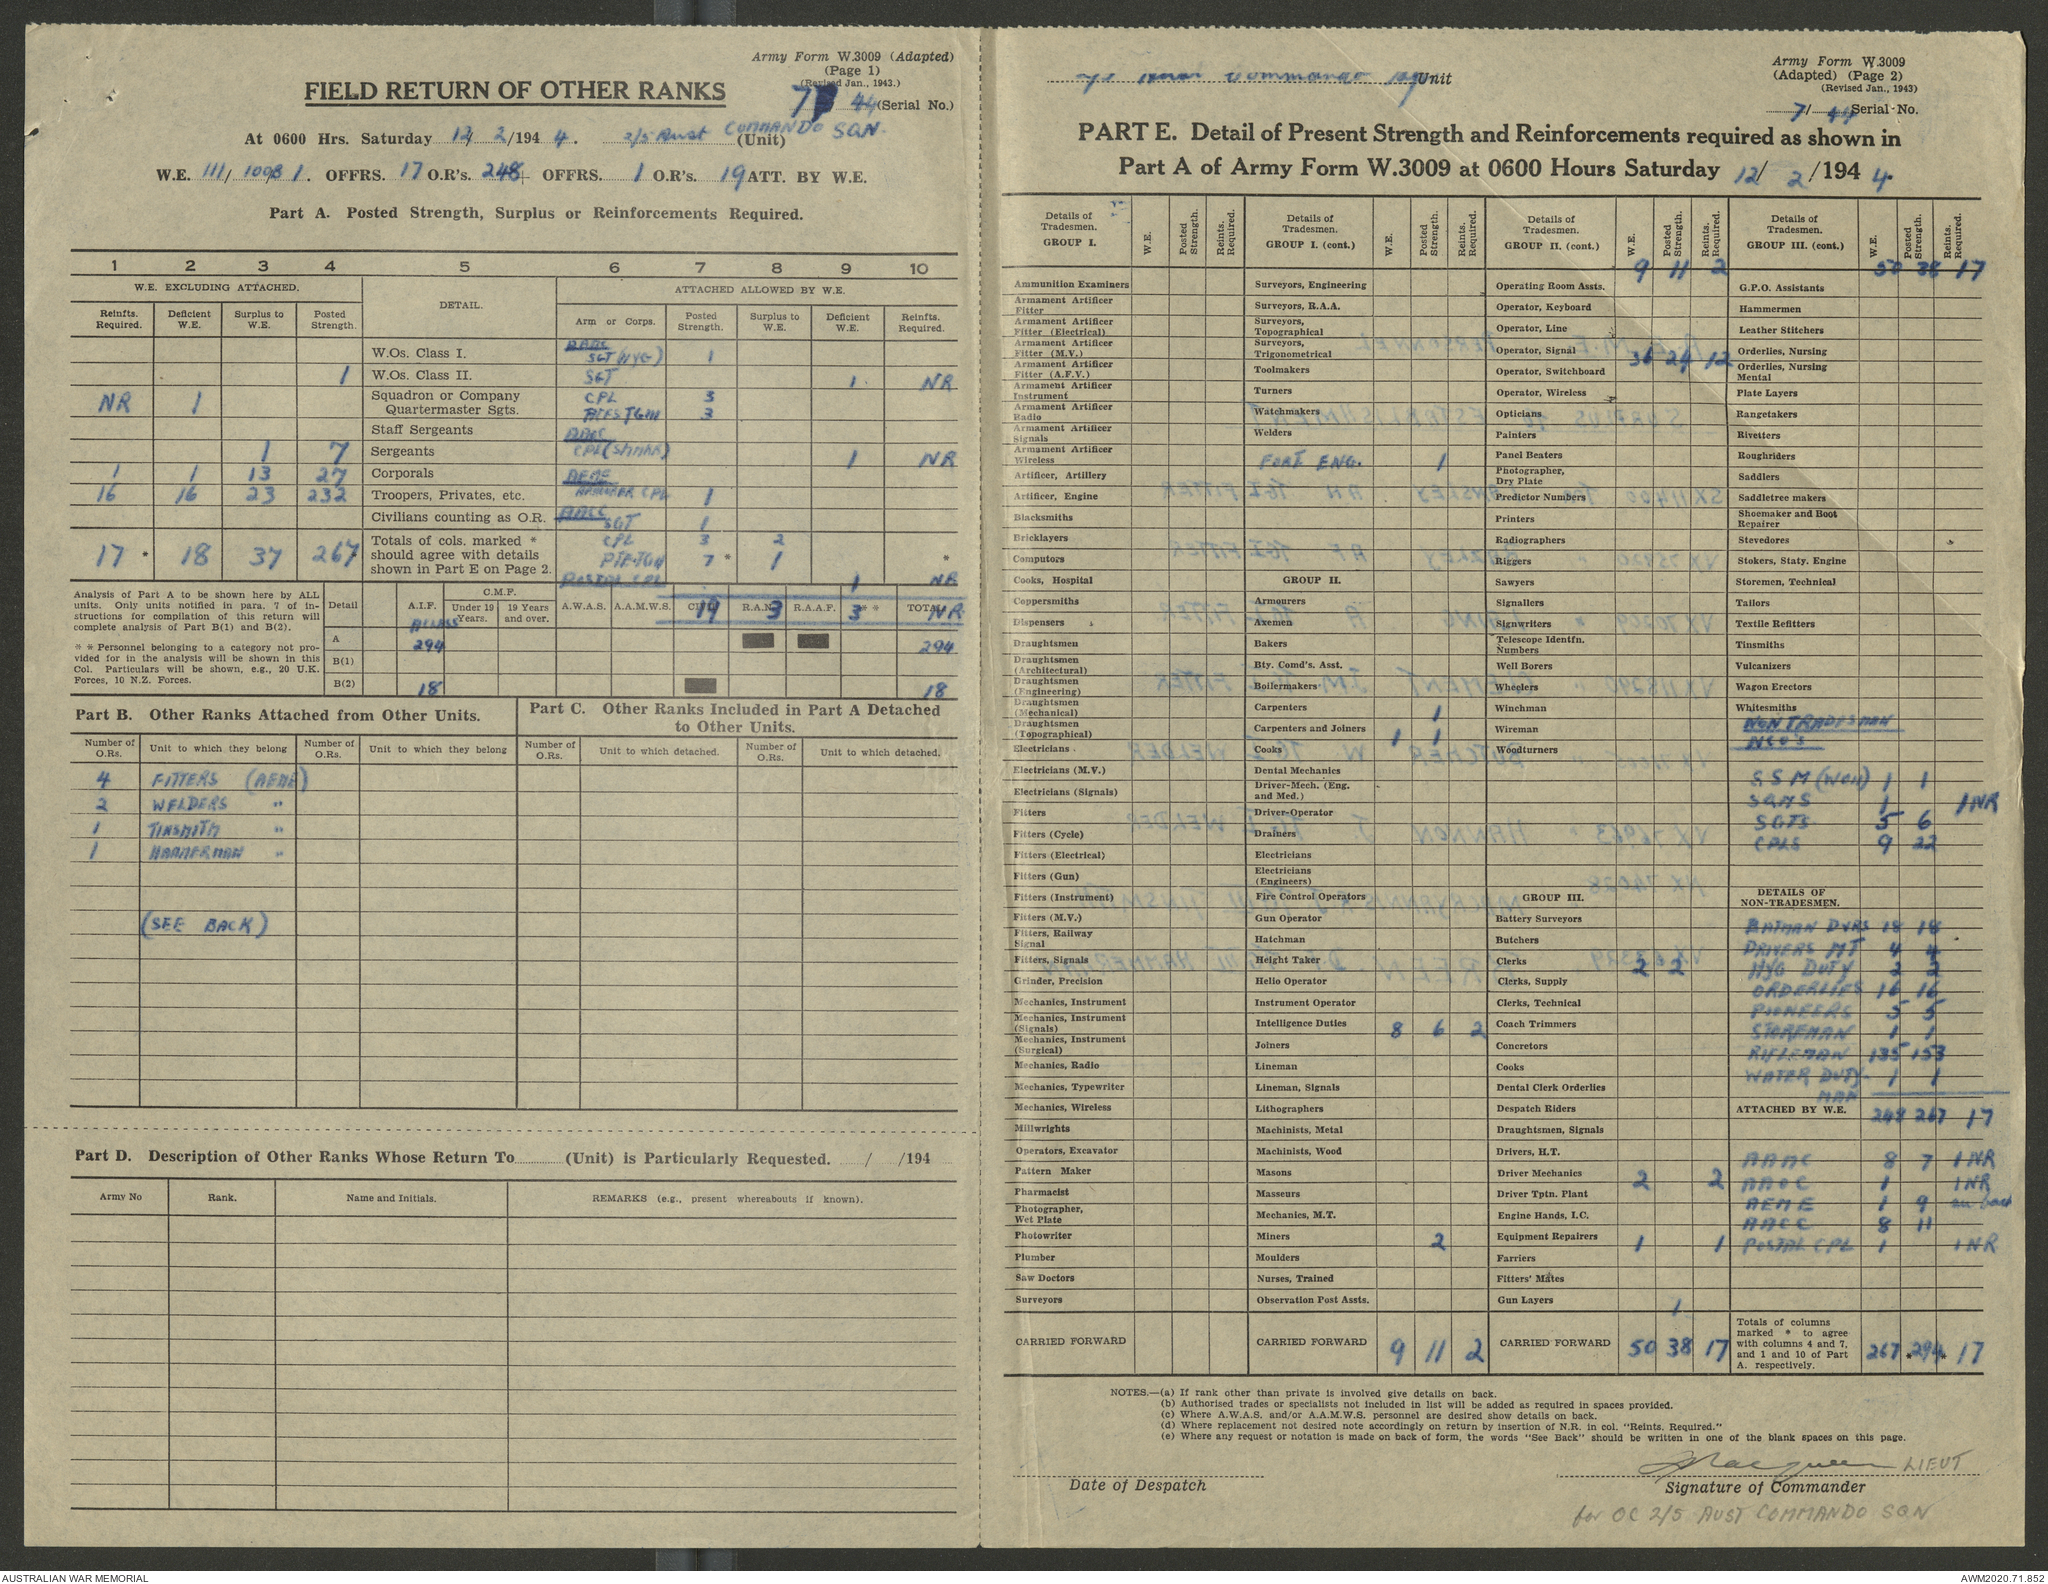 Army Form W.3009 (Adapted)
(Page 1)
(Revised Jan., 1943.)
FIELD RETURN OF OTHER RANKS
7 44 (Serial No.)
At 0600 Hrs. Saturday 12/2/1944. 2/5 Aust COMMANDO SQN. (Unit)
W.E. 111/ 1. OFFRS. 17 O.R's. 248 OFFRS. 1 O.R's. 19 ATT. BY W.E.
Part A. Posted Strength, Surplus or Reinforcements Required.
1 2 3 4 5 6 7 8 9 10
W.E. EXCLUDING ATTACHED. DETAIL. ATTACHED ALLOWED BY W.E.
Reinfts. Required. Deficient W.E. Surplus to W.E. Posted Strength. Arm or Corps. Posted Strength. Surplus to W.E. Deficient W.E. Reinfts. Required.
W.Os. Class I. AAMC SGT (HYG) 1
1 W.Os. Class II. SGT 1 NR
NR 1 Squadron or Company Quartermaster Sgts. CPL 3
3
Staff Sergeants AAOC
1 7 Sergeants 1 NR
1 1 13 27 Corporals AEME
16 16 23 232 Troopers, Privates, etc. ARMORER CPL 1
Civilians counting as O.R. AACC SGT 1
17 * 18 37 267 * Totals of cols. marked * should agree with details shown in Part E on Page 2. CPL 3 2
7 * 1 *
POSTAL CPL 1 NR
Analysis of Part A to be shown here by ALL units. Only units notified in para. 7 of instructions for compilation of this return will complete analysis of Part B(1) and B(2).
* * Personnel belonging to a category not provided for in the analysis will be shown in this Col. Particulars will be shown, e.g., 20 U.K. Forces, 10 N.Z. Forces.
Detail A.I.F. C.M.F. Under 19 Years. 19 Years and over. A.W.A.S. A.A.M.W.S. CIVIL 19 R.A.N. 3 R.A.A.F. 3 * * TOTAL NR
A 294 294
B(1)
B(2) 18 18
Part B. Other Ranks Attached from Other Units.
Part C. Other Ranks Included in Part A Detached to Other Units.
Number of O.Rs. Unit to which they belong Number of O.Rs. Unit to which they belong Number of O.Rs. Unit to which detached. Number of O.Rs. Unit to which detached.
4 FITTERS (AEME)
2 WELDERS "
1 TINSMITH "
1 HAMMERMAN "
(SEE BACK)
Part D. Description of Other Ranks Whose Return To (Unit) is Particularly Requested. / /194
Army No Rank. Name and Initials. REMARKS (e.g., present whereabouts if known).
Commando Unit
Army Form W.3009
(Adapted) (Page 2)
(Revised Jan., 1943)
7/ 44 Serial No.
PART E. Detail of Present Strength and Reinforcements required as shown in
Part A of Army Form W.3009 at 0600 Hours Saturday 12/2/1944.
Details of Tradesmen. GROUP I. W.E. Posted Strength. Reints. Required.
Ammunition Examiners
Armament Artificer Fitter
Armament Artificer Fitter (Electrical)
Armament Artificer Fitter (M.V.)
Armament Artificer Fitter (A.F.V.)
Armament Artificer Instrument
Armament Artificer Radio
Armament Artificer Signals
Armament Artificer Wireless
Artificer, Artillery
Artificer, Engine
Blacksmiths
Bricklayers
Computors
Cooks, Hospital
Coppersmiths
Dispensers
Draughtsmen
Draughtsmen (Architectural)
Draughtsmen (Engineering)
Draughtsmen (Mechanical)
Draughtsmen (Topographical)
Electricians
Electricians (M.V.)
Electricians (Signals)
Fitters
Fitters (Cycle)
Fitters (Electrical)
Fitters (Gun)
Fitters (Instrument)
Fitters (M.V.)
Fitters, Railway Signal
Fitters, Signals
Grinder, Precision
Mechanics, Instrument
Mechanics, Instrument (Signals)
Mechanics, Instrument (Surgical)
Mechanics, Radio
Mechanics, Typewriter
Mechanics, Wireless
Millwrights
Operators, Excavator
Pattern Maker
Pharmacist
Photographer, Wet Plate
Photowriter
Plumber
Saw Doctors
Surveyors
CARRIED FORWARD
Details of Tradesmen. GROUP I. (cont.) W.E. Posted Strength. Reints. Required.
Surveyors, Engineering
Surveyors, R.A.A.
Surveyors, Topographical
Surveyors, Trigonometrical
Toolmakers
Turners
Watchmakers
Welders
FORT ENG. 1
GROUP II.
Armourers
Axemen
Bakers
Bty. Comd's. Asst.
Boilermakers
Carpenters 1
Carpenters and Joiners 1 1
Cooks
Dental Mechanics
Driver-Mech. (Eng. and Med.)
Driver-Operator
Drainers
Electricians
Electricians (Engineers)
Fire Control Operators
Gun Operator
Hatchman
Height Taker
Helio Operator
Instrument Operator
Intelligence Duties 8 6 2
Joiners
Lineman
Lineman, Signals
Lithographers
Machinists, Metal
Machinists, Wood
Masons
Masseurs
Mechanics, M.T.
Miners 2
Moulders
Nurses, Trained
Observation Post Assts.
CARRIED FORWARD 9 11 2
Details of Tradesmen. GROUP II. (cont) W.E. Posted Strength. Reints. Required.
9 11 2
Operating Room Assts.
Operator, Keyboard
Operator, Line
Operator, Signal 36 24 12
Operator, Switchboard
Operator, Wireless
Opticians
Painters
Panel Beaters
Photographer, Dry Plate
Predictor Numbers
Printers
Radiographers
Riggers
Sawyers
Signallers
Signwriters
Telescope Identfn. Numbers
Well Borers
Wheelers
Winchman
Wireman
Woodturners
GROUP III.
Battery Surveyors
Butchers
Clerks 2 2
Clerks, Supply
Clerks, Technical
Coach Trimmers
Concretors
Cooks
Dental Clerk Orderlies
Despatch Riders
Draughtsmen, Signals
Drivers, H.T.
Driver Mechanics 2 2
Driver Tptn. Plant
Engine Hands, I.C.
Equipment Repairers 1 1
Farriers
Fitters' Mates
Gun Layers 1
CARRIED FORWARD 50 38 17
Details of Tradesmen. GROUP III. (cont.) W.E. Posted Strength. Reints. Required.
50 38 17
G.P.O. Assistants
Hammermen
Leather Stitchers
Orderlies, Nursing
Orderlies, Nursing Mental
Plate Layers
Rangetakers
Rivetters
Roughriders
Saddlers
Saddletree makers
Shoemaker and Boot Repairer
Stevedores
Stokers, Staty. Engine
Storemen, Technical
Tailors
Textile Refitters
Tinsmiths
Vulcanizers
Wagon Erectors
Whitesmiths
NON TRADESMAN
NCO'S
SSM (WOII) 1 1
SQMS 1 1NR
SGTS 5 6
CPLS 9 22
DETAILS OF NON-TRADESMEN.
BATMAN DVRS 18 18
DRIVERS MT 4 4
HYG DUTY 2 2
ORDERLIES 16 16
PIONEERS 5 5
STOREMAN 1 1
RIFLEMAN 135 153
WATER DUTY MAN 1 1
ATTACHED BY W.E. 248 267 17
AAMC 8 7 1NR
AAOC 1 1NR
AEME 1 9
AACC 8 11
POSTAL CPL 1 1NR
Totals of columns marked * to agree with columns 4 and 7, and 1 and 10 of Part A. respectively. 267 * 294 * 17
NOTES.—(a) If rank other than private is involved give details on back.
(b) Authorised trades or specialists not included in list will be added as required in spaces provided.
(c) Where A.W.A.S. and/or A.A.M.W.S. personnel are desired show details on back.
(d) Where replacement not desired note accordingly on return by insertion of N.R. in col. "Reints. Required."
(e) Where any request or notation is made on back of form, the words "See Back" should be written in one of the blank spaces on this page.
LIEUT
Date of Despatch
Signature of Commander
for OC 2/5 AUST COMMANDO SQN
AUSTRALIAN WAR MEMORIAL
AWM2020.71.852